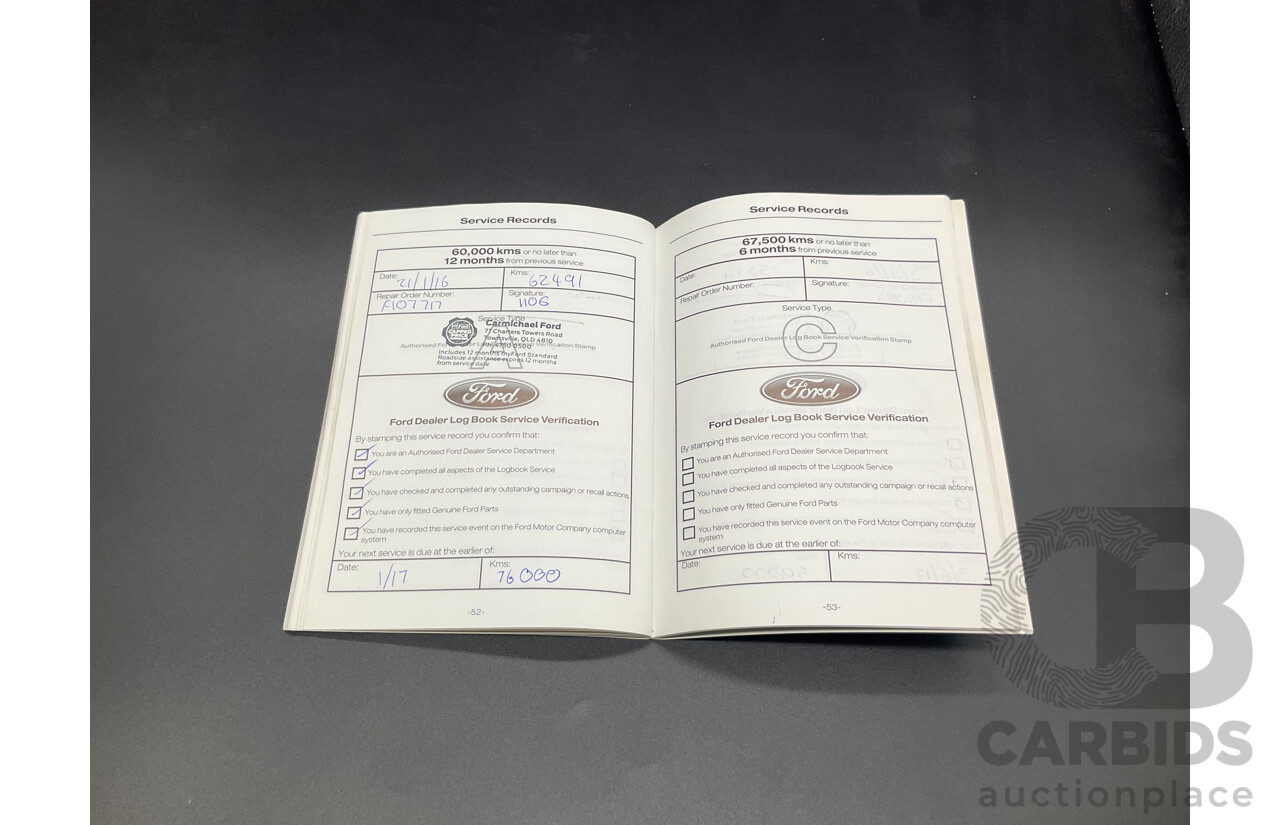 Service Records
60,000 kms or no later than
12 months from previous service
Date: 21/1/16
Kms: 62491
Repair Order Number: F107717
Signature: 1106
Service Type
Carmichael Ford
77 Charters Towers Road
Townsville, QLD 4810
Includes 12 months myFord Standard
Roadside Assistance expires 12 months
from service date
A
Ford
Ford Dealer Log Book Service Verification
By stamping this service record you confirm that:
You are an Authorised Ford Dealer Service Department
You have completed all aspects of the Logbook Service
You have checked and completed any outstanding campaign or recall actions
You have only fitted Genuine Ford Parts
You have recorded this service event on the Ford Motor Company computer
system
Your next service is due at the earlier of:
Date: 1/17
Kms: 76000
-52-
Service Records
67,500 kms or no later than
6 months from previous service
Date:
Kms:
Repair Order Number:
Signature:
Service Type
C
Authorised Ford Dealer Log Book Service Verification Stamp
Ford
Ford Dealer Log Book Service Verification
By stamping this service record you confirm that:
You are an Authorised Ford Dealer Service Department
You have completed all aspects of the Logbook Service
You have checked and completed any outstanding campaign or recall actions
You have only fitted Genuine Ford Parts
You have recorded this service event on the Ford Motor Company computer
system
Your next service is due at the earlier of:
Date:
Kms:
-53-
CB
CARBIDS
auctionplace